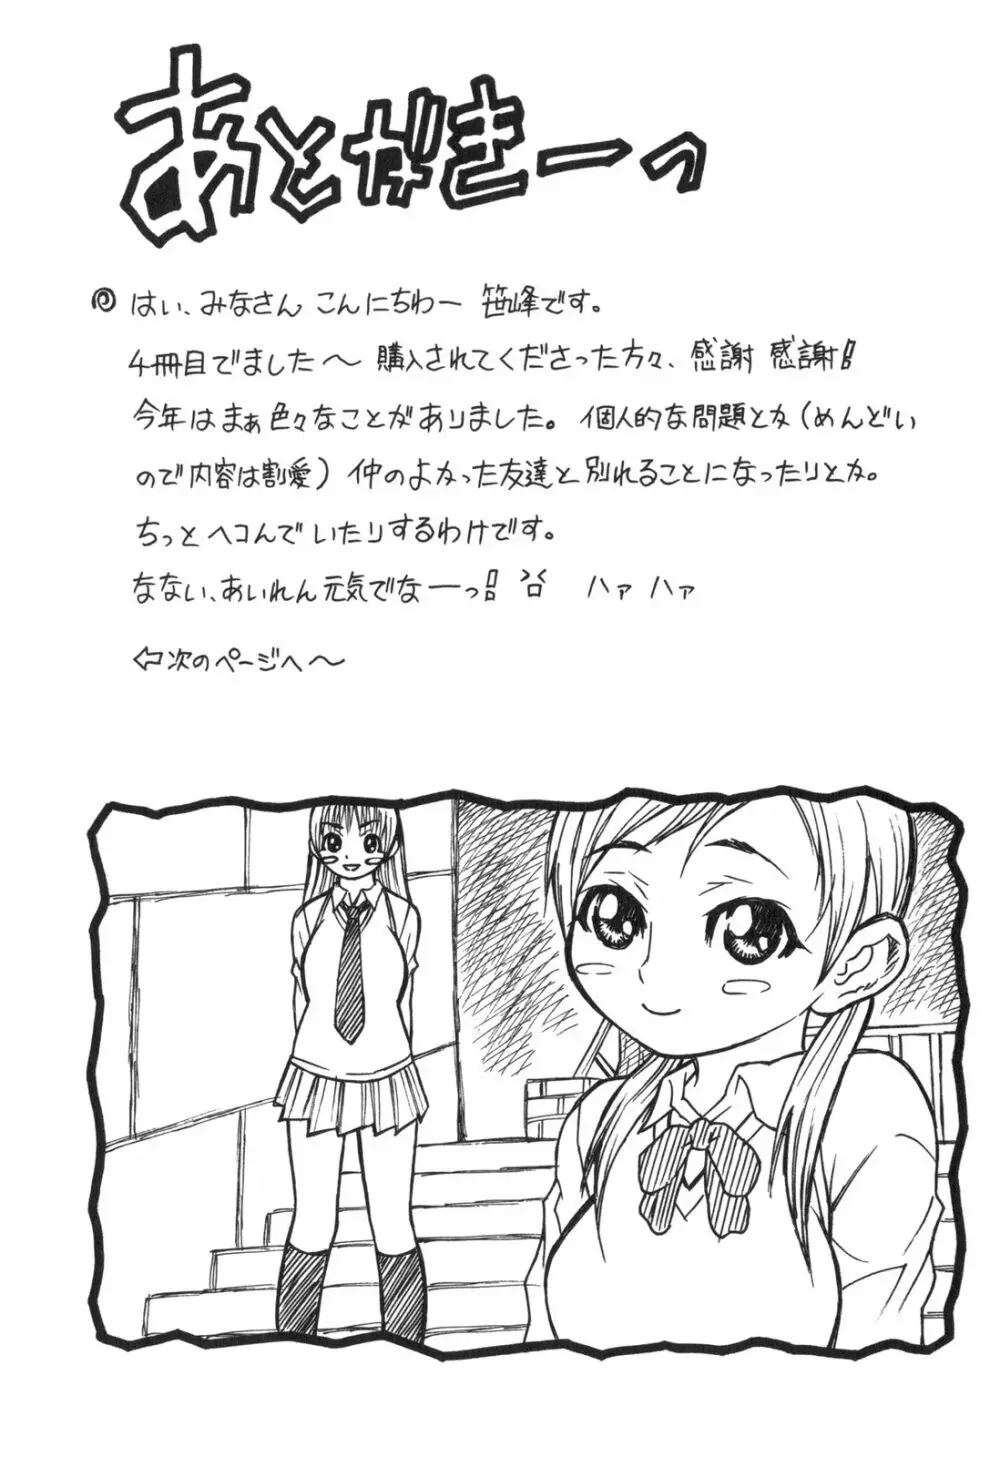 あとがきーっ
はい、みなさん こんにちわー 笹峰です。
4冊目でました～ 購入されてくださった方々、感謝 感謝!!
今年はまぁ色々なことがありました。個人的な問題とか(めんどい
ので内容は割愛)仲のよかった友達と別れることになったりとか。
ちっとヘコんでいたりするわけです。
なない、あいれん元気でなーっ!! ハァ ハァ
⇦次のページへ～